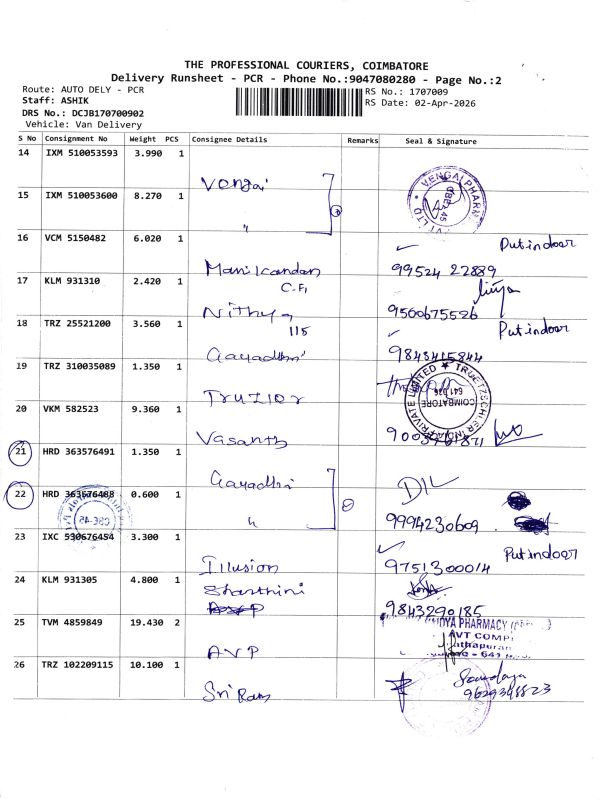 THE PROFESSIONAL COURIERS, COIMBATORE
Delivery Runsheet - PCR - Phone No.:9047080280 - Page No.:2
Route: AUTO DELY - PCR
RS No.: 1707009
Staff: ASHIK
RS Date: 02-Apr-2026
DRS No.: DCJB170700902
Vehicle: Van Delivery
S No Consignment No Weight PCS Consignee Details Remarks Seal & Signature
14 IXM 510053593 3.990 1
Vengai
VENGAI PHARM
PVT LTD
CBE-45
15 IXM 510053600 8.270 1
"
16 VCM 5150482 6.020 1
Putindoor
Manikandan 99524 22889
17 KLM 931310 2.420 1
C.F1
Nithya 9500675526
18 TRZ 25521200 3.560 1
115
Putindoor
Gayadhri 9843415844
19 TRZ 310035089 1.350 1
TRUETZSCHLER INDIA PRIVATE LIMITED
COIMBATORE
641 026
20 VKM 582523 9.360 1
Vasanth
21 HRD 363576491 1.350 1
Gayadhri DIL
22 HRD 363676488 0.600 1
" 9994230609
CBE-45
23 IXC 530676454 3.300 1
Putindoor
Illusion 9751300014
24 KLM 931305 4.800 1
Sharthini
9843290185
25 TVM 4859849 19.430 2
PHARMACY
AVT COMP
AVP
26 TRZ 102209115 10.100 1
Sri Ram